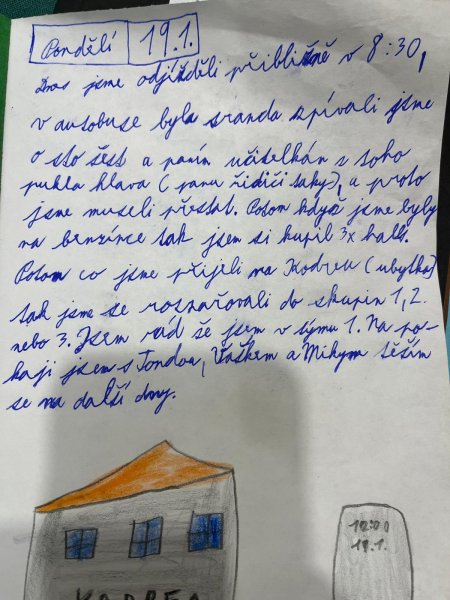 Pondělí 19.1.
Dnes jsme odjížděli přibližně v 8:30,
v autobuse byla sranda zpívali jsme
o sto šest a paním učitelkám z toho
pukla hlava (panu řidiči taky), a proto
jsme museli přestat. Potom když jsme byly
na benzínce tak jsem si kupil 3x
Potom co jsme přijeli na Kodreu (ubytko)
tak jsme se rozřazovali do skupin 1, 2.
nebo 3. Jsem rád že jsem v týmu 1. Na po-
koji jsem s Tondou, Vaškem a Mikym těším
se na další dny.
KADREA
19.1.